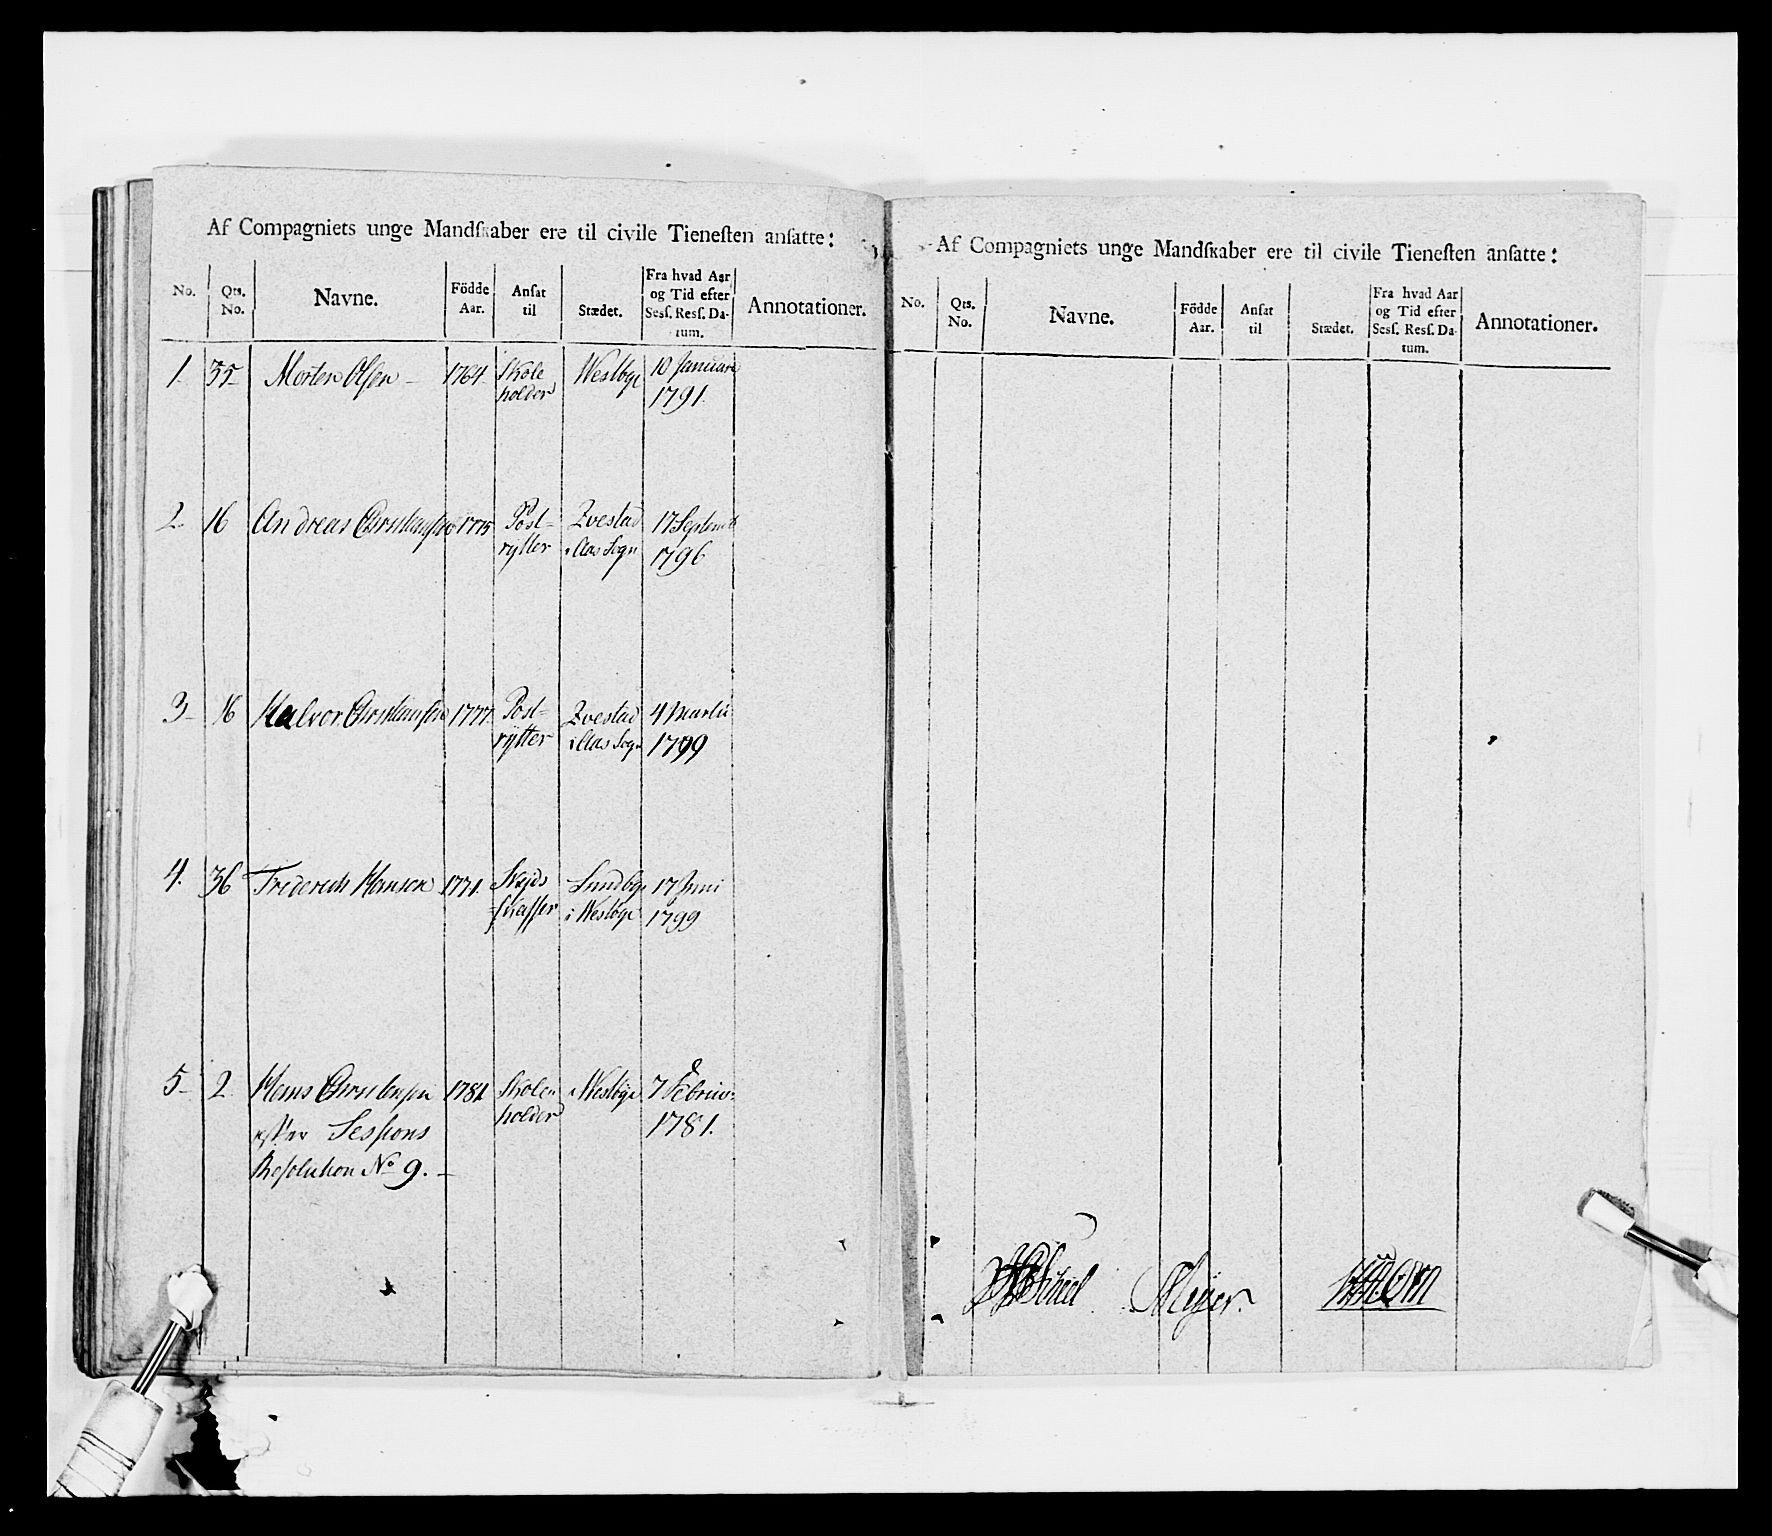 Af Compagniets unge Mandſkaber ere til civile Tieneſten anſatte:
No. Qts. No. Navne. Födde Aar. Anſat til Stædet. Fra hvad Aar og Tid efter Sesſ. Resſ. Datum. Annotationer.
1. 35 Morten Olſen 1764 Skole Westbye 10 Januarii
holder 1791.
2. 16 Andreas Christianſen 1775 Post- 17 Septemb
rytter i Aas Sogn 1796
3 16 Halvor Christianſen 1777 Post- 4 Martii
rÿtter i Aas Sogn 1799
4. 36 Friderich Hansen 1771. Skyds Lundbye 17 Juni
skaffer i Westbye 1799
5 2 Hans Christenſen 1781 Skole Westbye 7 Februar
efter Sesſions holder 1781.
Resolution No 9.
Af Compagniets unge Mandſkaber ere til civile Tieneſten anſatte:
No. Qts. No. Navne. Födde Aar. Anſat til Stædet. Fra hvad Aar og Tid efter Sesſ. Resſ. Datum. Annotationer.
Meÿer.